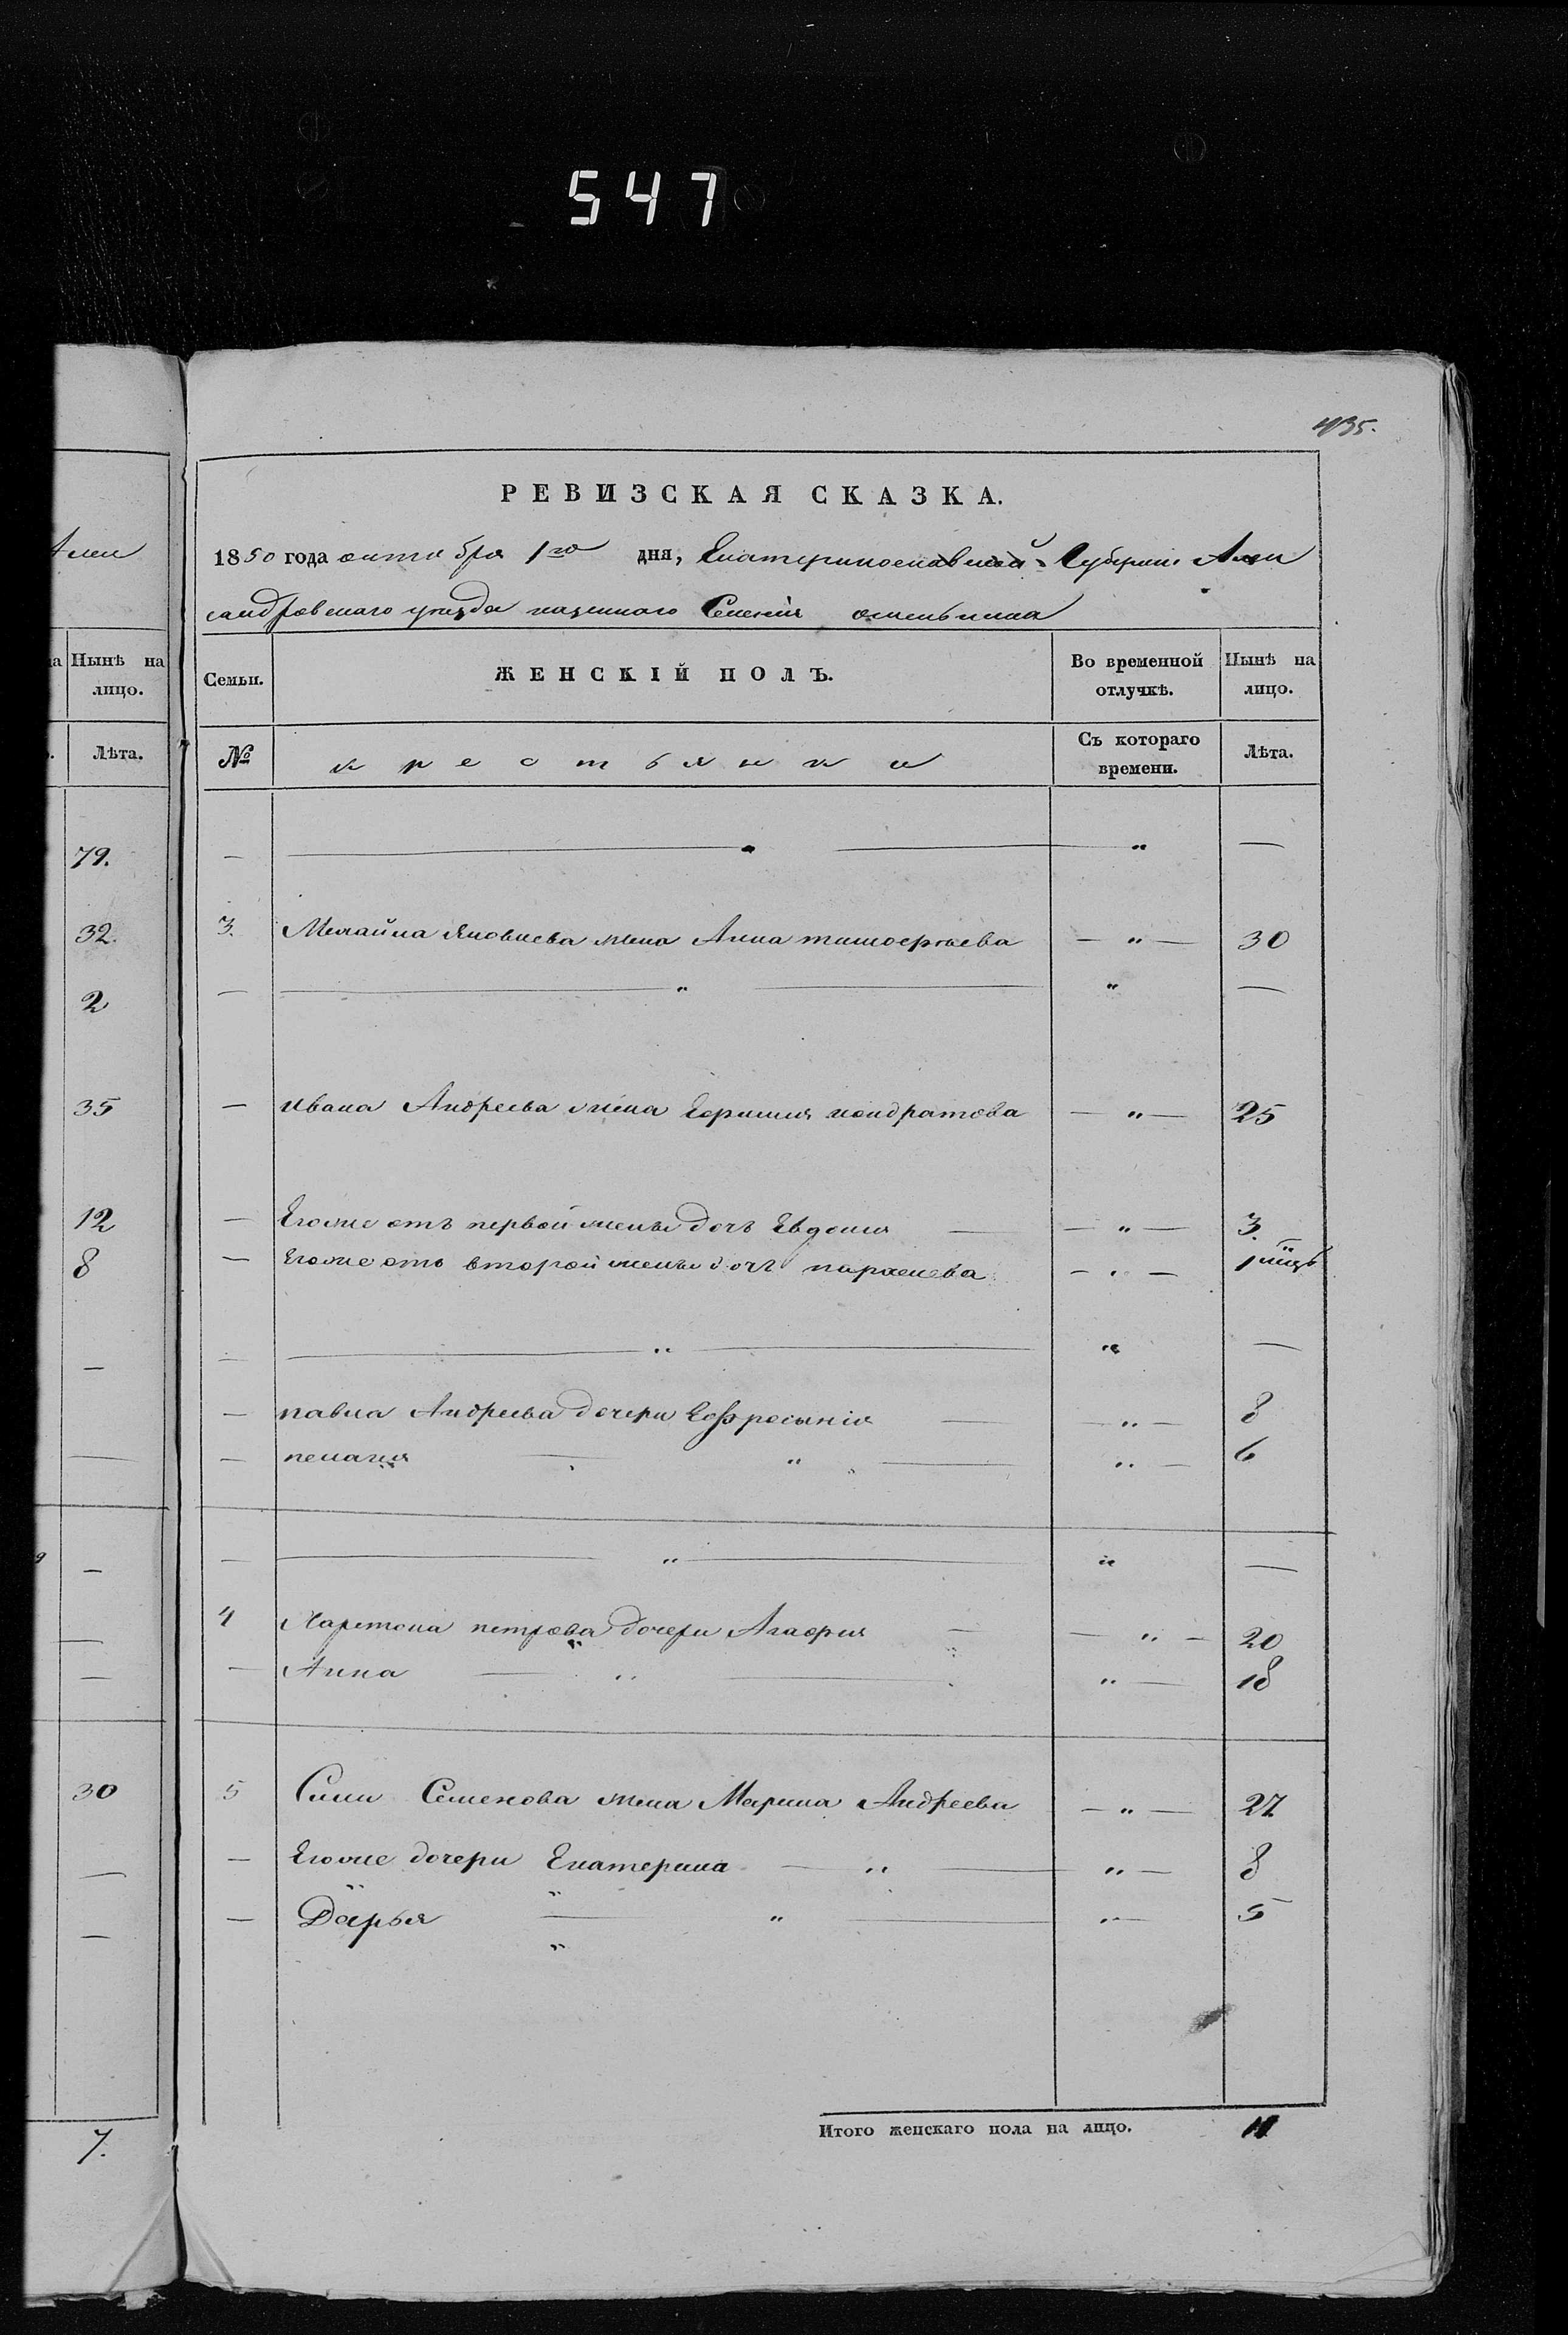 547
435.
Алек
на Нынѣ на лицо.
Лѣта.
79.
32.
2
35
12
8
—
—
—
—
—
30
—
—
7.
РЕВИЗСКАЯ СКАЗКА.
1850 года октября 1го дня, Екатеринославской Губерніи Алек
сандровскаго уѣзда казеннаго Селенія
Семьи. ЖЕНСКІЙ ПОЛЪ. Во временной отлучкѣ. Нынѣ на лицо.
№ крестьянки Съ котораго времени. Лѣта.
— — „ — „ —
3. Михайла Яковлева жена Анна тимофеева — „ — 30
— — „ — „ —
— ивана Андреева жена Ефимия кондратова — „ — 25
— Егоже отъ первой жены дочь Евдокия — — „ — 3.
— Егоже отъ второй жены дочь — „ — 1 мцъ
— — „ — „ —
— павла Андреева дочери Ефросинія — — „ — 8
— пелагея — „ — „ — 6
— — „ — „ —
4 Харитона петрова дочери Агафия — — „ — 20
— Анна — „ — „ — 18
5 Силы Семенова жена Марина Андреева — „ — 27
— Егоже дочери Екатерина — „ — „ — 8
— Дарья — „ — „ — 5
Итого женскаго пола на лицо. 11